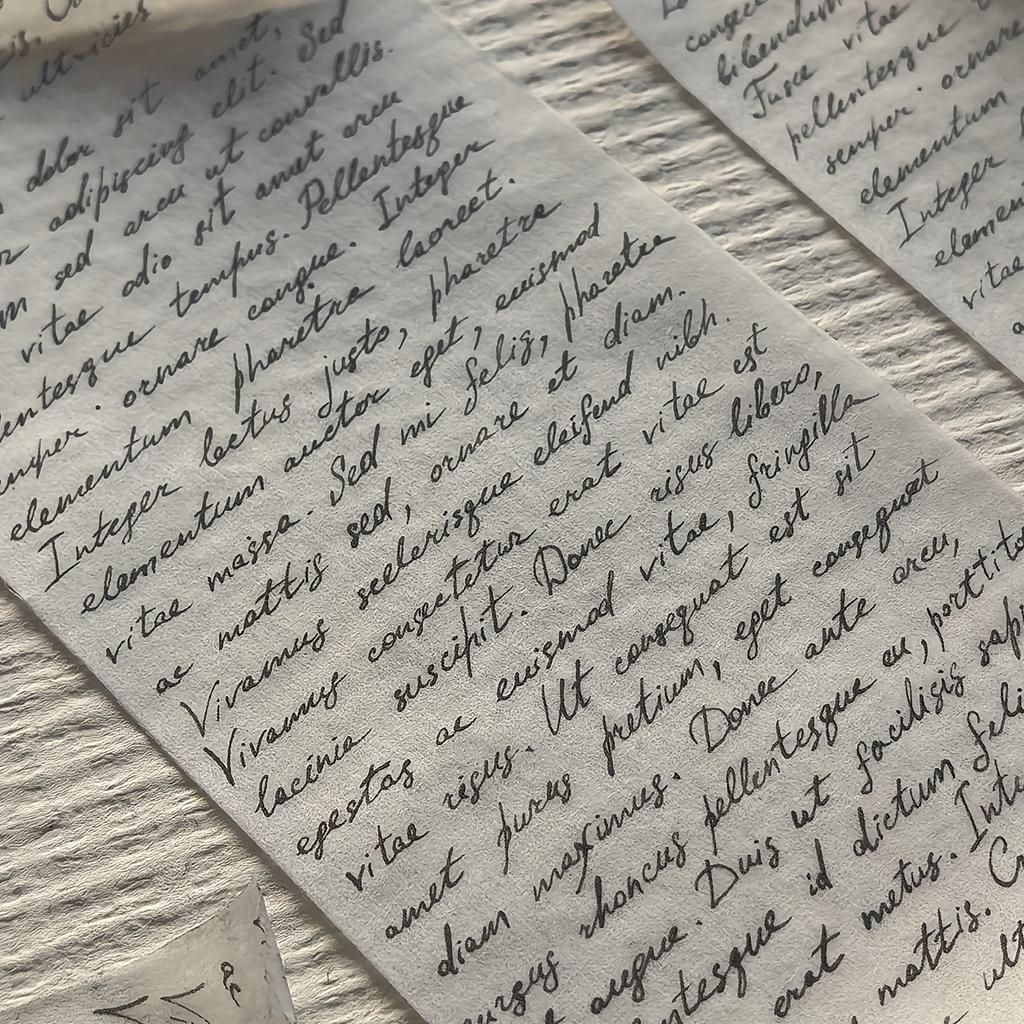 ultricies
dolor sit amet, Sed
adipiscing elit. Sed
sed arcu ut convallis.
vitae odio sit amet arcu
tempus. Pellentesque
ornare congue. Integer
elementum pharetra laoreet.
Integer lectus justo, pharetra
elementum auctor eget, euismod
vitae massa. Sed mi felis, pharetra
ac mattis sed, ornare et diam.
Vivamus scelerisque eleifend nibh.
Vivamus consectetur erat vitae est
lacinia suscipit. Donec risus libero,
egestas ac euismod vitae, fringilla
vitae risus. Ut consequat est sit
amet purus pretium, eget consequat
diam maximus. Donec ante arcu,
rhoncus pellentesque eu,
augue. Duis ut facilisis
id dictum
erat metus.
mattis.
bibendum
Fusce vitae
pellentesque
semper. ornare
elementum
Integer
vitae